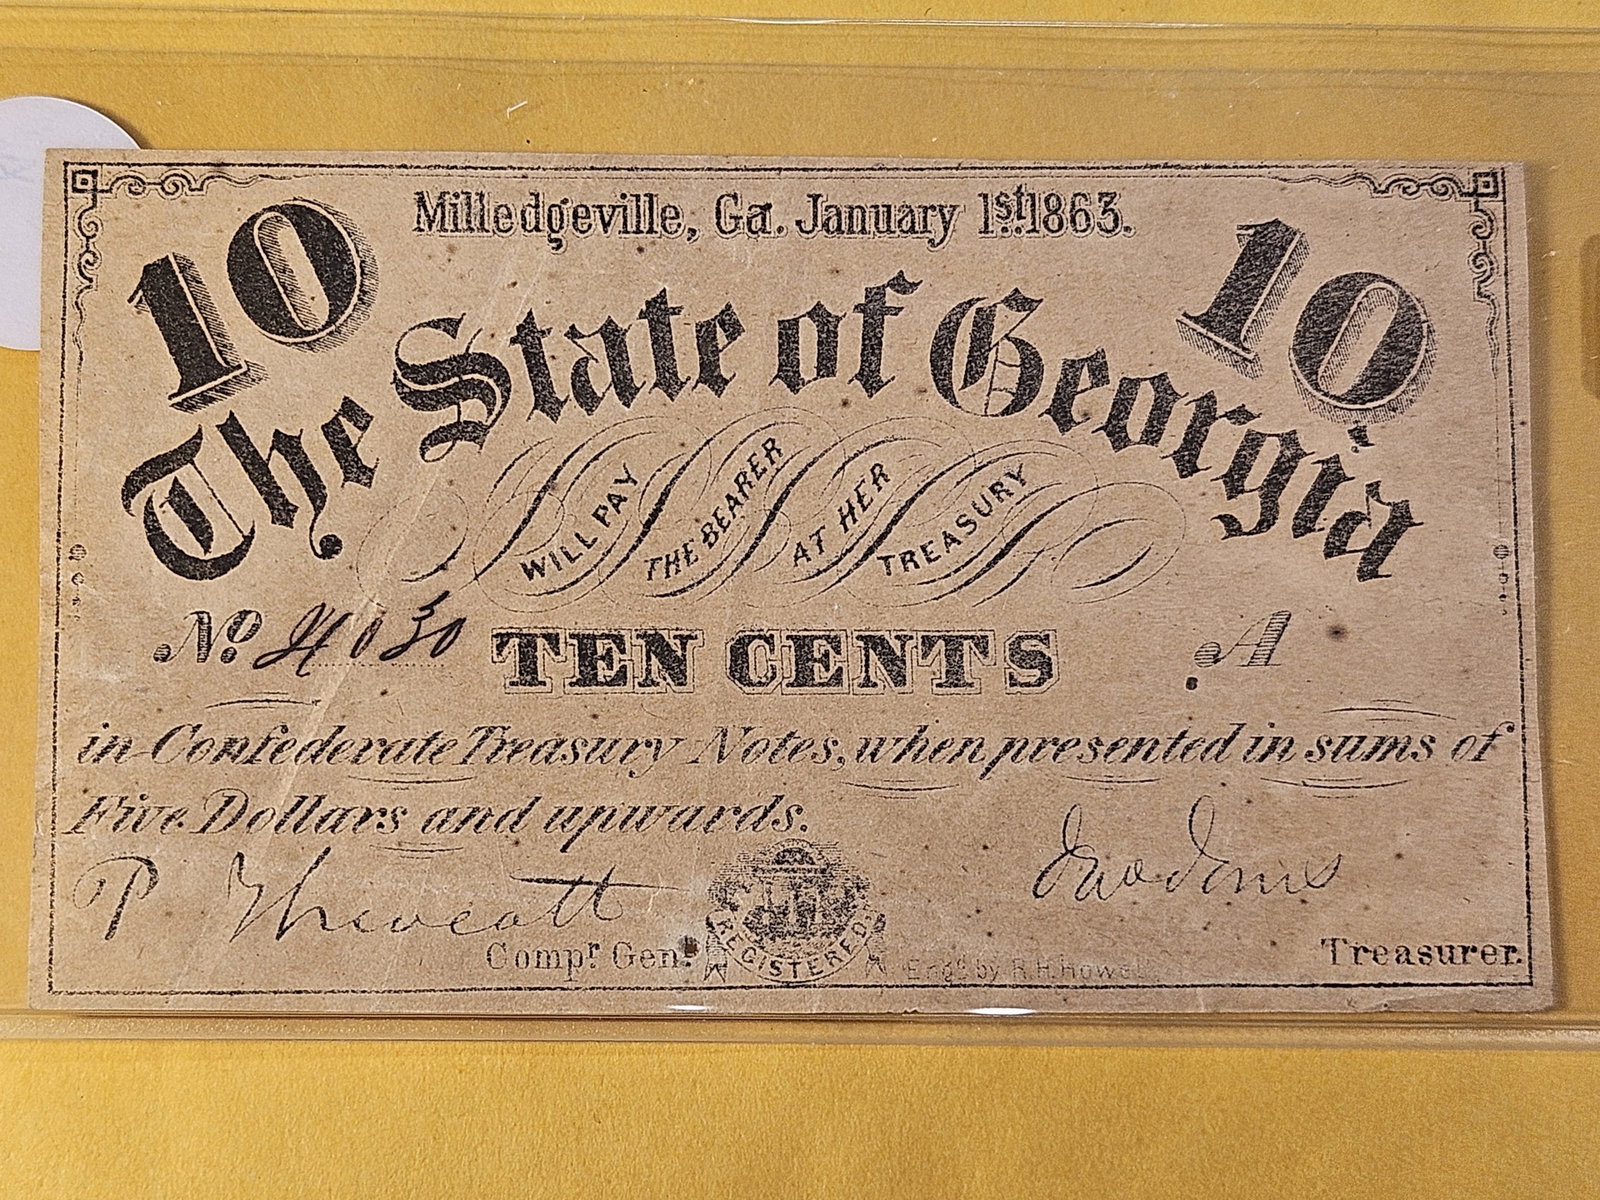 10 Milledgeville, Ga. January 1st. 1863. 10
The State of Georgia
WILL PAY THE BEARER AT HER TREASURY
No. 4030 TEN CENTS . A
in Confederate Treasury Notes, when presented in sums of
Five Dollars and upwards.
P Thweatt Jno Jones
Compr. Genl. REGISTERED Treasurer.
Engd. by R.H. Howell